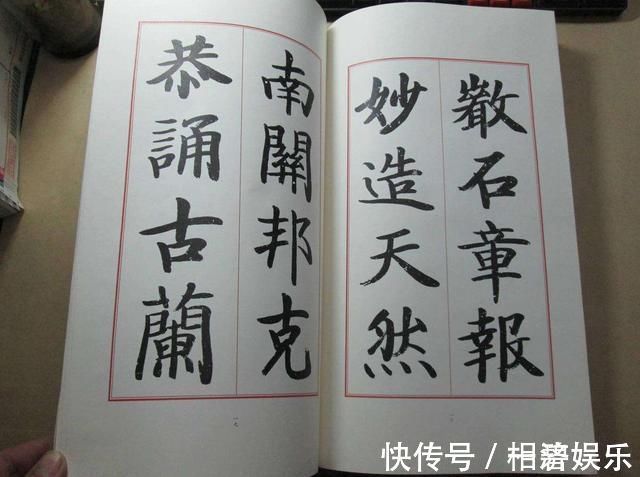 石章報
妙造天然
南關邦克
恭誦古蘭
一七
快传号 / 娱乐